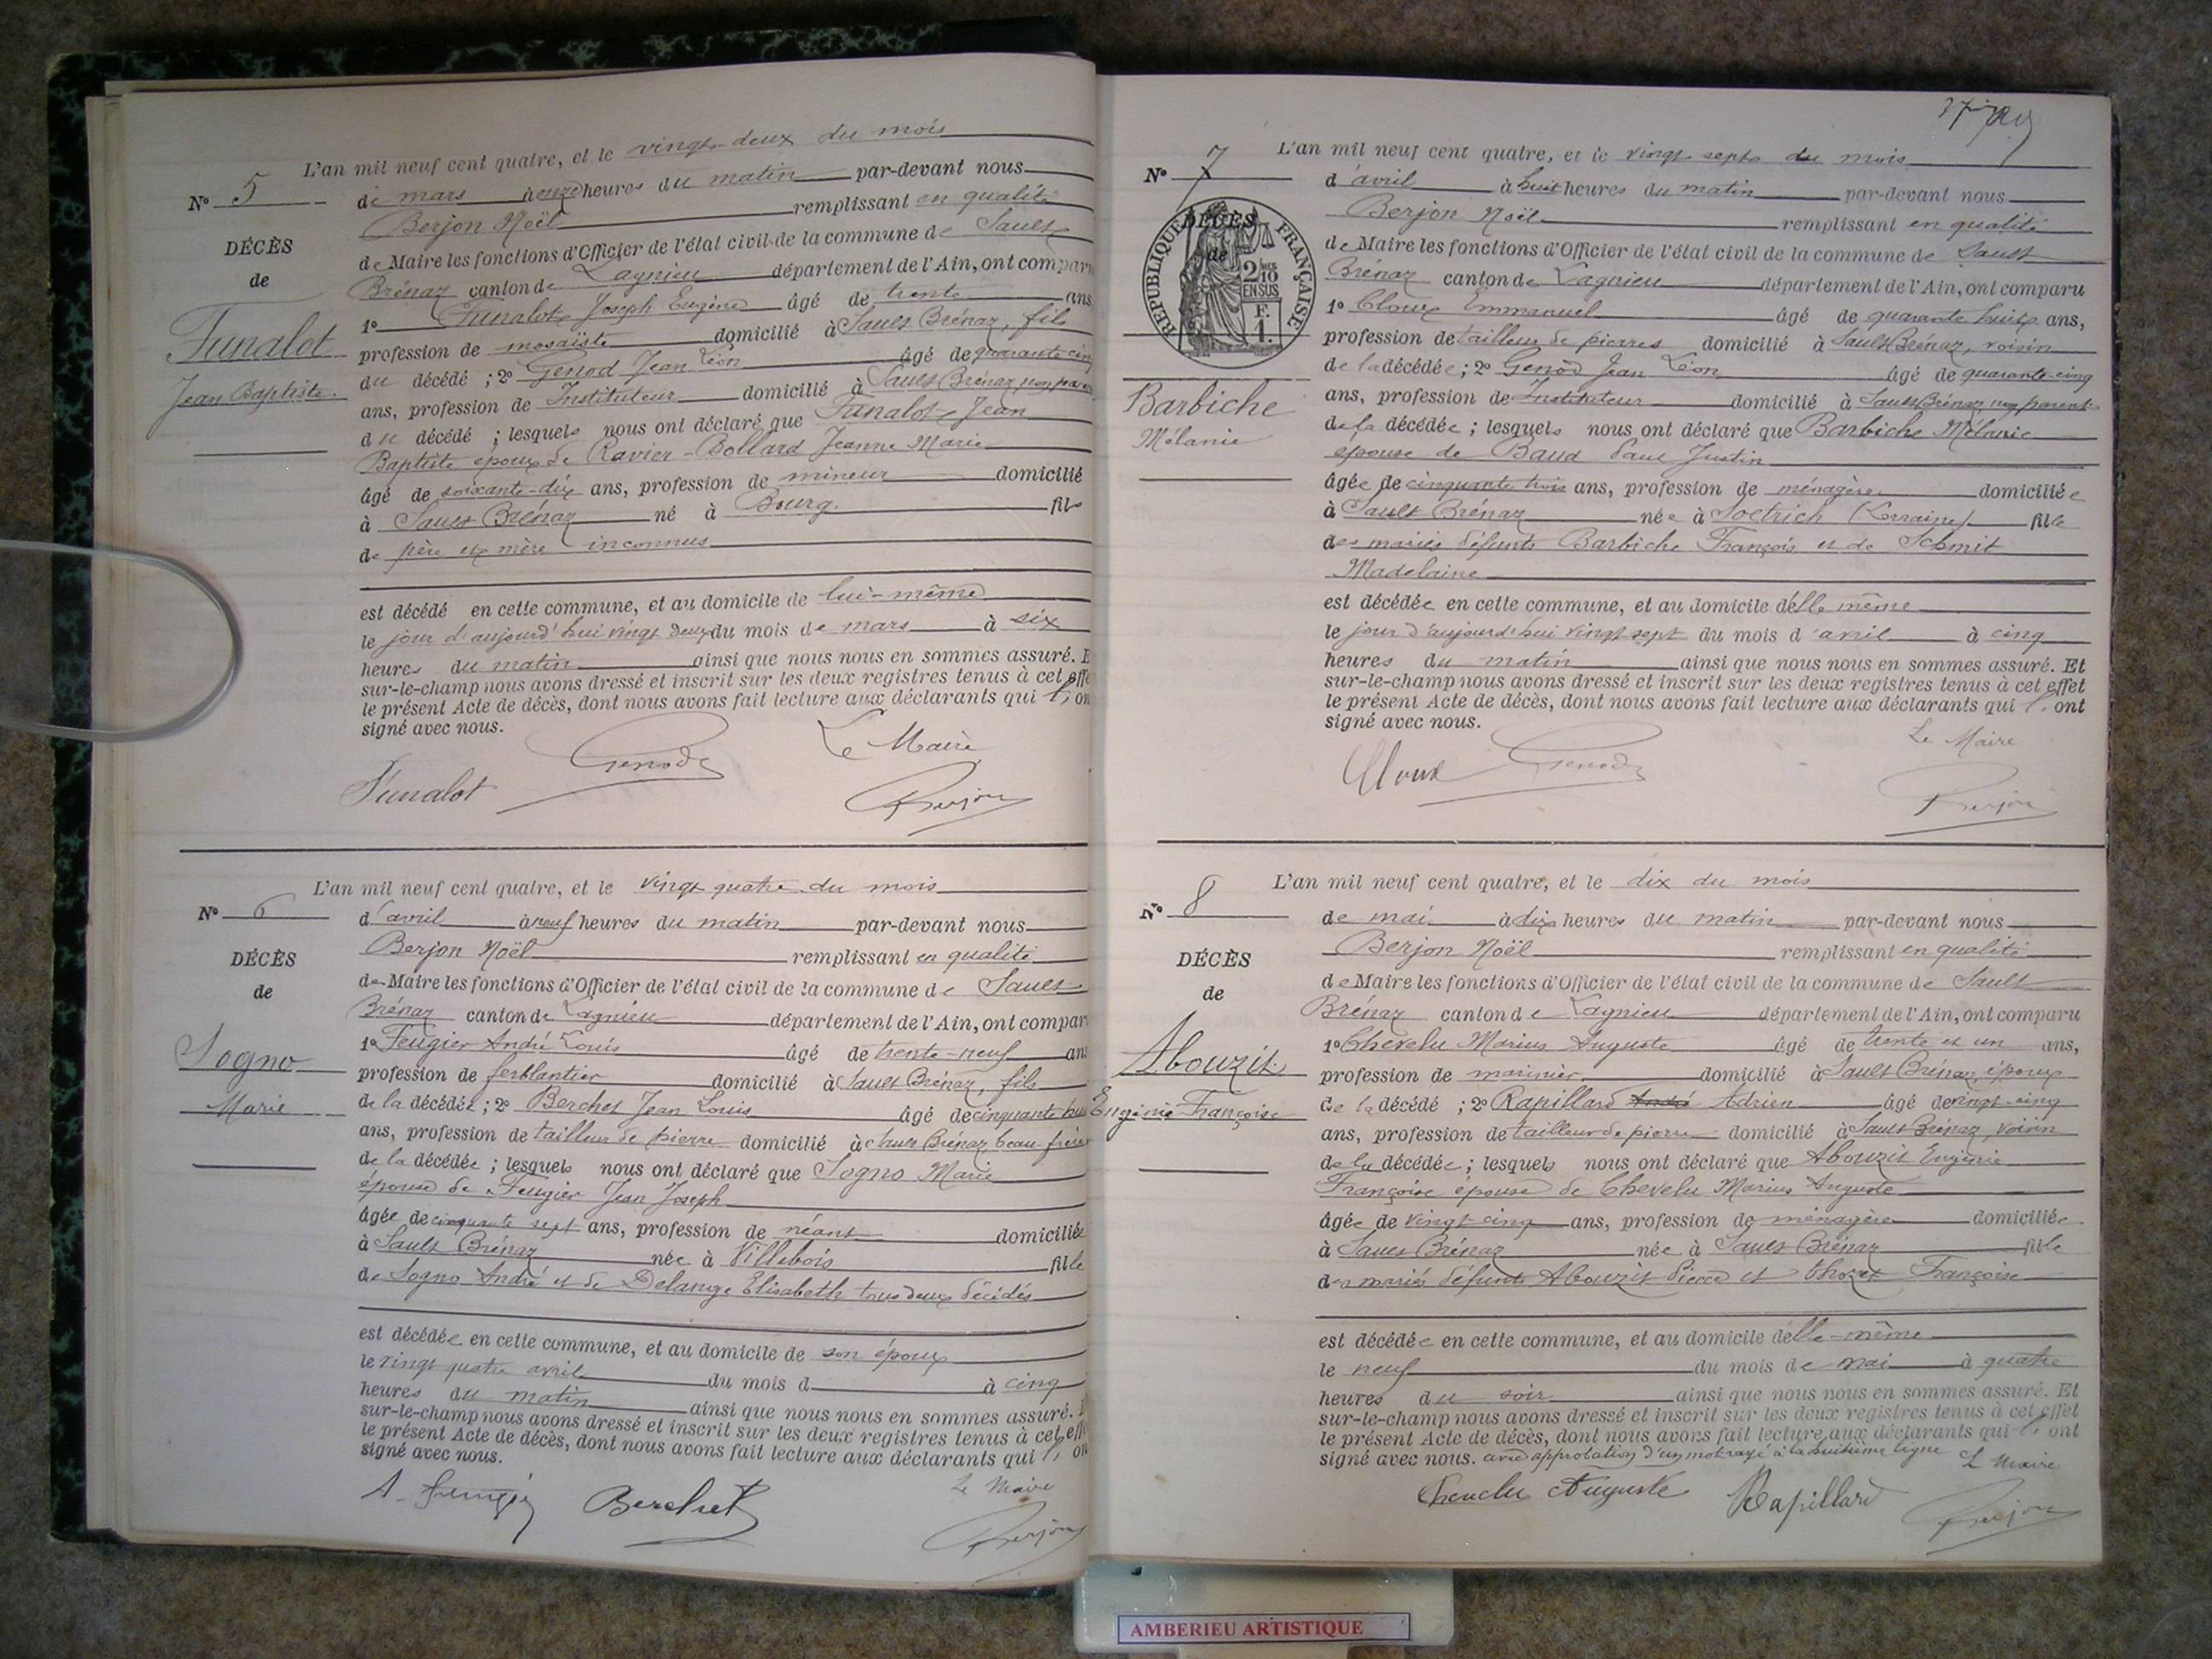 L'an mil neuf cent quatre, et le vingt-deux du mois
N° 5
de mars à onze heures du matin par-devant nous
Berjon Noël remplissant en qualité
DÉCÈS
de Maire les fonctions d'Officier de l'état civil de la commune de Sault
de
Brénaz canton de Lagnieu département de l'Ain, ont comparu
Funalot
1° Funalot Joseph Eugène âgé de trente ans
profession de mosaïste domicilié à Sault Brénaz, fils
Jean Baptiste
du décédé ; 2° Genod Jean Léon âgé de quarante cinq
ans, profession de Instituteur domicilié à Sault Brénaz, non parent
du décédé ; lesquels nous ont déclaré que Funalot Jean
Baptiste époux de Ravier-Bollard Jeanne Marie
âgé de soixante-dix ans, profession de mineur domicilié
à Sault Brénaz né à Bourg fils
de père et mère inconnus
est décédé en cette commune, et au domicile de lui-même
le jour d'aujourd'hui vingt deux du mois de mars à six
heures du matin ainsi que nous nous en sommes assuré. E
sur-le-champ nous avons dressé et inscrit sur les deux registres tenus à cet effe
le présent Acte de décès, dont nous avons fait lecture aux déclarants qui l' on
signé avec nous.
Le Maire
Funalot Genod Berjon
L'an mil neuf cent quatre, et le vingt quatre du mois
N° 6
d'avril à neuf heures du matin par-devant nous
Berjon Noël remplissant en qualité
DÉCÈS
de Maire les fonctions d'Officier de l'état civil de la commune de Sault
de
Brénaz canton de Lagnieu département de l'Ain, ont compar
Sogno
1° Feugier André Louis âgé de trente-neuf ans
profession de ferblantier domicilié à Sault Brénaz, fils
Marie
de la décédée ; 2° Berchet Jean Louis âgé de cinquante hui
ans, profession de tailleur de pierre domicilié à Sault Brénaz, beau-frère
de la décédée ; lesquels nous ont déclaré que Sogno Marie
épouse de Feugier Jean Joseph
âgée de cinquante sept ans, profession de néant domiciliée
à Sault Brénaz née à Villebois fille
de Sogno André et de Delange Elisabeth tous deux décédés
est décédée en cette commune, et au domicile de son époux
le vingt quatre avril du mois d à cinq
heures du matin ainsi que nous nous en sommes assuré.
sur-le-champ nous avons dressé et inscrit sur les deux registres tenus à cet eff
le présent Acte de décès, dont nous avons fait lecture aux déclarants qui l' on
signé avec nous.
Le Maire
A. Feugier Berchet Berjon
L'an mil neuf cent quatre, et le vingt sept du mois
N° 7
d'avril à huit heures du matin par-devant nous
Berjon Noël remplissant en qualité
DÉCÈS
de
RÉPUBLIQUE FRANÇAISE
2/10 EN SUS
F. 1.
de Maire les fonctions d'Officier de l'état civil de la commune de Sault
Brénaz canton de Lagnieu département de l'Ain, ont comparu
1° Cloux Emmanuel âgé de quarante huit ans,
profession de tailleur de pierres domicilié à Sault Brénaz, voisin
de la décédée ; 2° Genod Jean Léon âgé de quarante-cinq
Barbiche
ans, profession de Instituteur domicilié à Sault Brénaz, non parent
Mélanie
de la décédée ; lesquels nous ont déclaré que Barbiche Mélanie
épouse de Baud Paul Justin
âgée de cinquante trois ans, profession de ménagère domiciliée
à Sault Brénaz née à Soetrich (Lorraine) fille
des mariés défunts Barbiche François et de Schmit
Madelaine
est décédée en cette commune, et au domicile d'elle même
le jour d'aujourd'hui vingt sept du mois d'avril à cinq
heures du matin ainsi que nous nous en sommes assuré. Et
sur-le-champ nous avons dressé et inscrit sur les deux registres tenus à cet effet
le présent Acte de décès, dont nous avons fait lecture aux déclarants qui l' ont
signé avec nous.
Le Maire
Cloux Genod Berjon
L'an mil neuf cent quatre, et le dix du mois
N° 8
de mai à dix heures du matin par-devant nous
Berjon Noël remplissant en qualité
DÉCÈS
de Maire les fonctions d'Officier de l'état civil de la commune de Sault
de
Brénaz canton de Lagnieu département de l'Ain, ont comparu
Abouzit
1° Chevelu Marius Auguste âgé de trente et un ans,
profession de marinier domicilié à Sault Brénaz, époux
Eugénie Françoise
de la décédé ; 2° Rapillard André Adrien âgé de vingt-cinq
ans, profession de tailleur de pierre domicilié à Sault Brénaz, voisin
de la décédée ; lesquels nous ont déclaré que Abouzit Eugénie
Françoise épouse de Chevelu Marius Auguste
âgée de vingt cinq ans, profession de ménagère domiciliée
à Sault Brénaz née à Sault Brénaz fille
des mariés défunts Abouzit Pierre et Françoise
est décédée en cette commune, et au domicile d'elle-même
le neuf du mois de mai à quatre
heures du soir ainsi que nous nous en sommes assuré. Et
sur-le-champ nous avons dressé et inscrit sur les deux registres tenus à cet effet
le présent Acte de décès, dont nous avons fait lecture aux déclarants qui l' ont
signé avec nous. avec approbation d'un mot rayé à la huitième ligne Le Maire
Chevelu Auguste Rapillard Berjon
AMBERIEU ARTISTIQUE